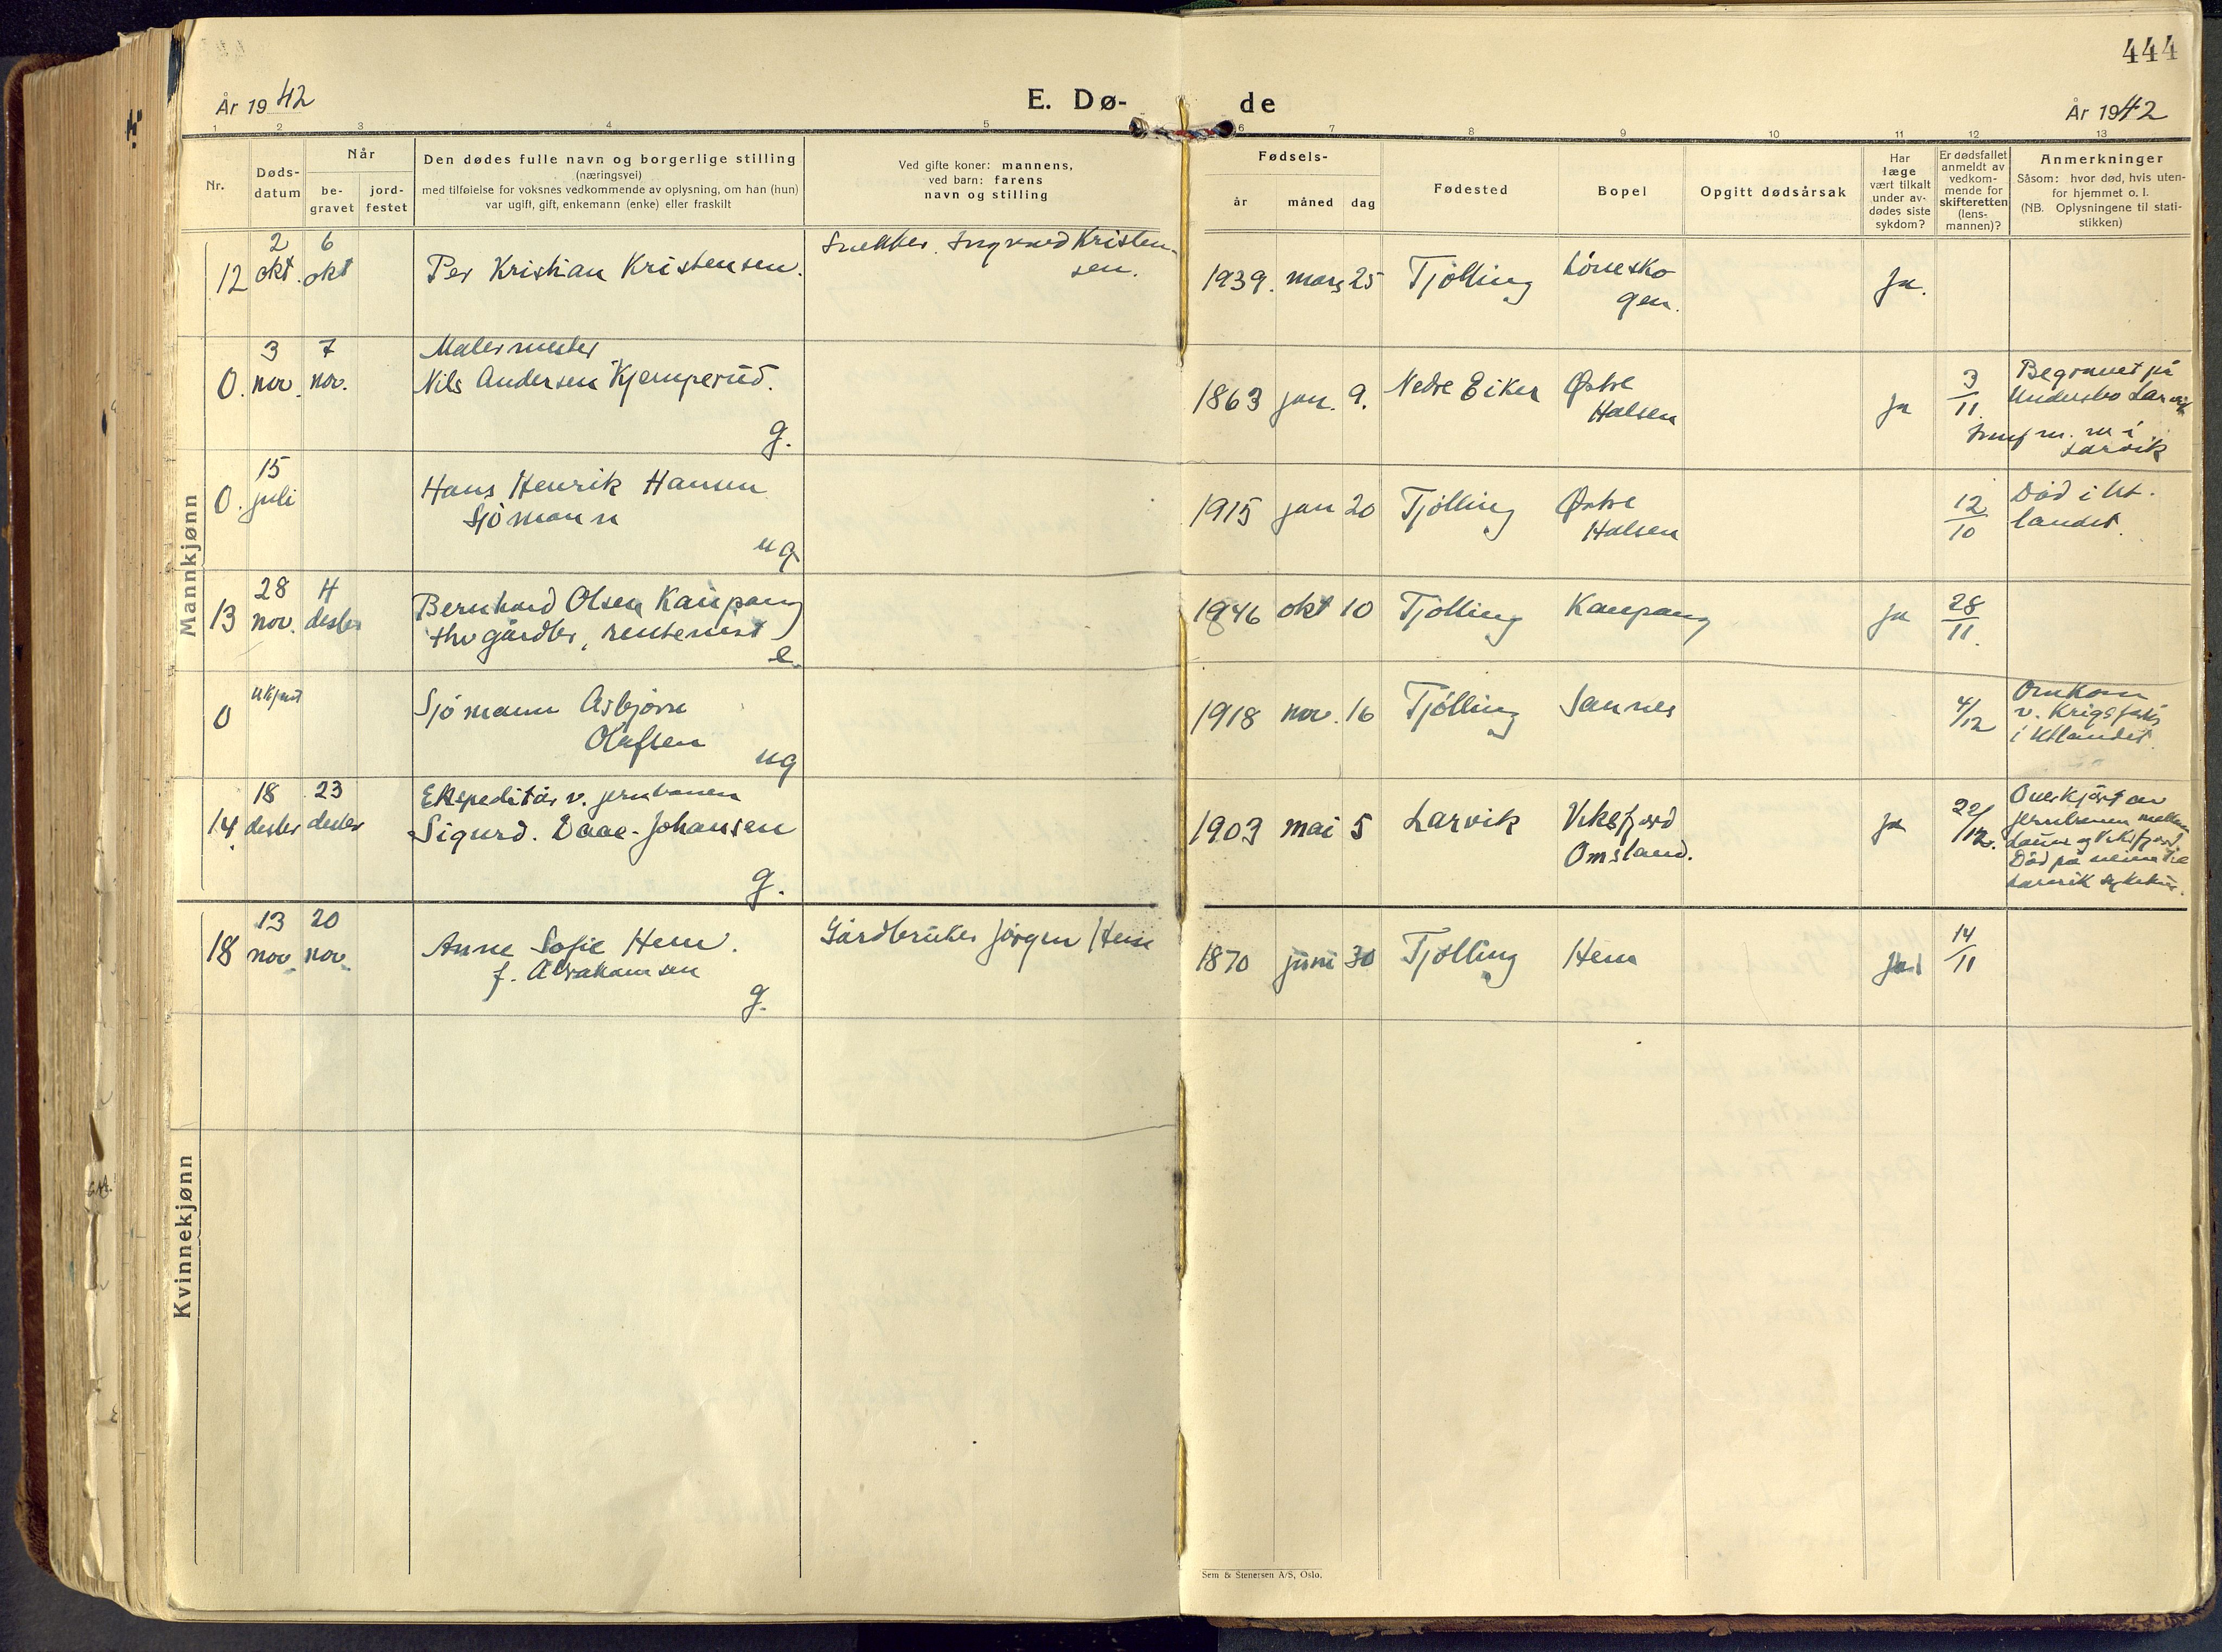 444
År 1942
E. Dø- de
År 1942
1 2 3 4 5 6 7 8 9 10 11 12 13
Nr.
Døds-
datum
Når
be-
gravet
jord-
festet
Den dødes fulle navn og borgerlige stilling
(næringsvei)
med tilføielse for voksnes vedkommende av oplysning, om han (hun)
var ugift, gift, enkemann (enke) eller fraskilt
Ved gifte koner: mannens,
ved barn: farens
navn og stilling
Fødsels-
år måned dag
Fødested
Bopel
Opgitt dødsårsak
Har
læge
vært tilkalt
under av-
dødes siste
sykdom?
Er dødsfallet
anmeldt av
vedkom-
mende for
skifteretten
(lens-
mannen)?
Anmerkninger
Såsom: hvor død, hvis uten-
for hjemmet o. l.
(NB. Oplysningene til stati-
stikken)
Mannkjønn
12
2
okt.
6
okt
Per Kristian Kristensen.
Snekker. Ingvard Kristen-
sen.
1939. mars 25
Tjølling
Lønesko
gen.
Ja.
0.
3
nov.
7
nov.
Malermester
Nils Andersen Kjemperud.
g.
1863 jan. 9.
Nedre Eiker
Østre
Halsen
ja
3
11.
Begravet på
Undersbo Larvik
m. i
Larvik
0.
15
juli
Hans Henrik Hansen
Sjømann
ug
1915 jan 20
Tjølling
Østre
Halsen
12
10
Død i ut.
landet.
13
28
nov.
4
desbr
Bernhard Olsen Kaupang
fhv gårdbr, rentenist
e.
1946 okt 10
Tjølling
Kaupang
ja
28
11.
0
ukjent
Sjømann Asbjørn
Olafsen
ug
1918 nov. 16
Tjølling
Sannes
4/12
Omkom
v. Krigsforlis
i Utlandet.
14
18
desbr
23
desbr
Ekspeditør v. jernbanen
Sigurd. Daae-Johansen
g.
1903 mai 5
Larvik
Viksfjord
Omsland.
ja
22/12.
Overkjørt av
jernbanen mellem
Lauve og Viksfjord.
Død på veien til
Larvik sykehus.
Kvinnekjønn
18
13
nov.
20
nov.
Anne Sofie Hem.
f. Abrahamsen
g.
Gårdbruker Jørgen Hem
1870 juni 30
Tjølling
Hem
ja
14
11
Sem & Stenersen A/S, Oslo.